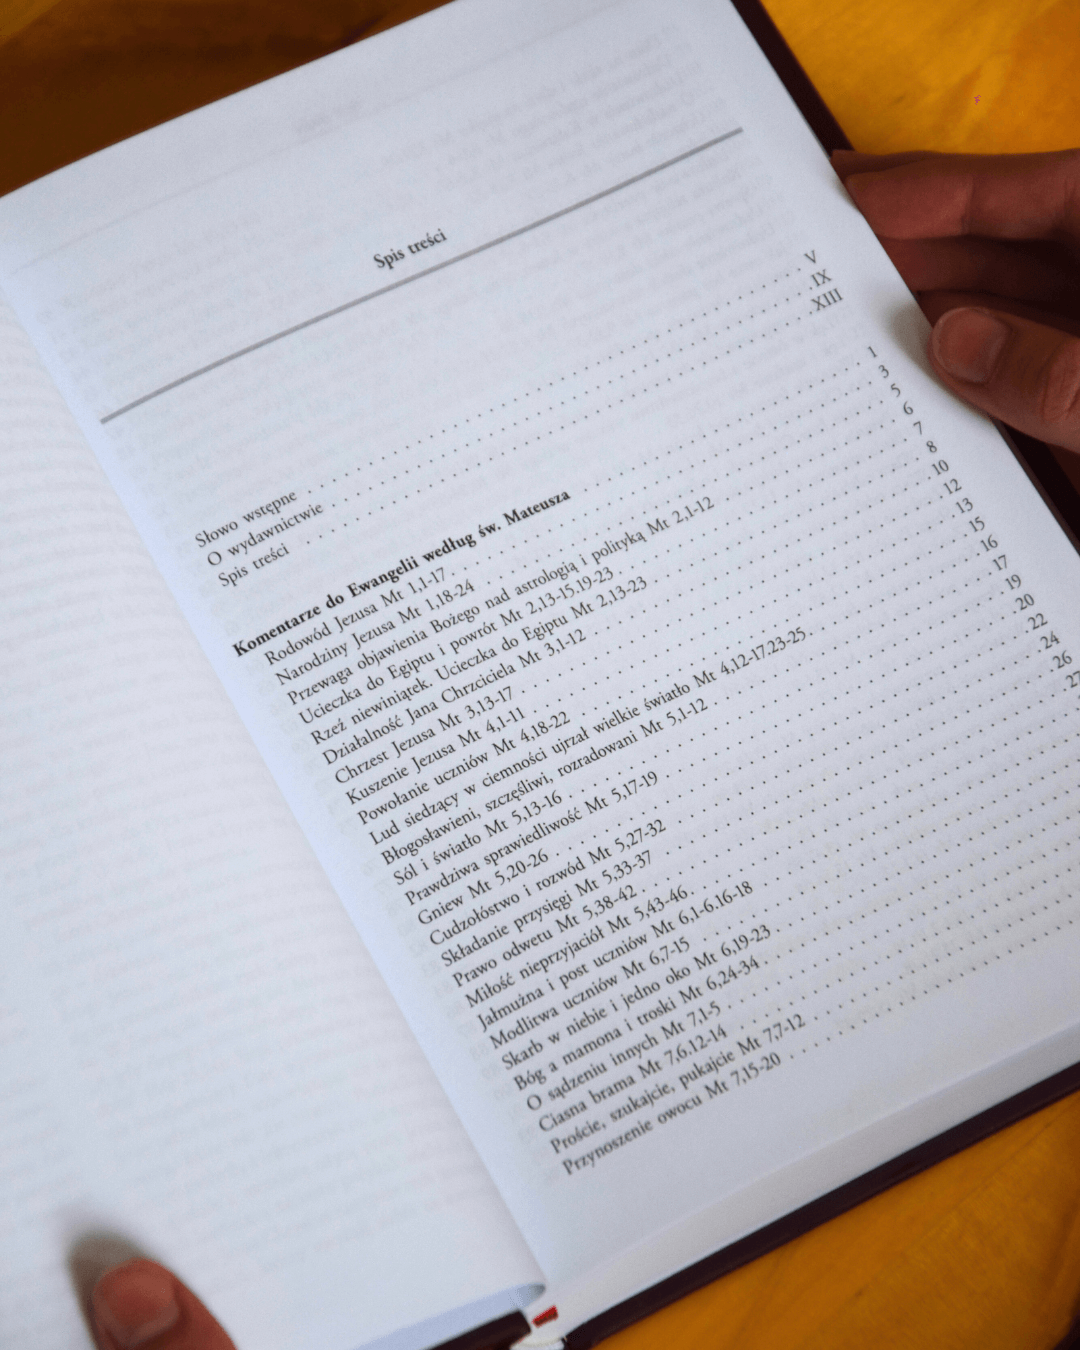 Spis treści
Słowo wstępne . . . . . . . . . . . . . . . . . . . . . . . . . . . . . . . . V
O wydawnictwie . . . . . . . . . . . . . . . . . . . . . . . . . . . . . . . IX
Spis treści . . . . . . . . . . . . . . . . . . . . . . . . . . . . . . . . . XIII
Komentarze do Ewangelii według św. Mateusza . . . . . . . . . . . . . . . . 1
Rodowód Jezusa Mt 1,1-17 . . . . . . . . . . . . . . . . . . . . . . . . . . 3
Narodziny Jezusa Mt 1,18-24 . . . . . . . . . . . . . . . . . . . . . . . . 5
Przewaga objawienia Bożego nad astrologią i polityką Mt 2,1-12 . . . . . . . 6
Ucieczka do Egiptu i powrót Mt 2,13-15.19-23 . . . . . . . . . . . . . . . . 7
Rzeź niewiniątek. Ucieczka do Egiptu Mt 2,13-23 . . . . . . . . . . . . . . 8
Działalność Jana Chrzciciela Mt 3,1-12 . . . . . . . . . . . . . . . . . . . 10
Chrzest Jezusa Mt 3,13-17 . . . . . . . . . . . . . . . . . . . . . . . . . 12
Kuszenie Jezusa Mt 4,1-11 . . . . . . . . . . . . . . . . . . . . . . . . . 13
Powołanie uczniów Mt 4,18-22 . . . . . . . . . . . . . . . . . . . . . . . . 15
Lud siedzący w ciemności ujrzał wielkie światło Mt 4,12-17.23-25 . . . . . . 16
Błogosławieni, szczęśliwi, rozradowani Mt 5,1-12 . . . . . . . . . . . . . . 17
Sól i światło Mt 5,13-16 . . . . . . . . . . . . . . . . . . . . . . . . . . 19
Prawdziwa sprawiedliwość Mt 5,17-19 . . . . . . . . . . . . . . . . . . . . 20
Gniew Mt 5,20-26 . . . . . . . . . . . . . . . . . . . . . . . . . . . . . . 22
Cudzołóstwo i rozwód Mt 5,27-32 . . . . . . . . . . . . . . . . . . . . . . 24
Składanie przysięgi Mt 5,33-37 . . . . . . . . . . . . . . . . . . . . . . . 26
Prawo odwetu Mt 5,38-42 . . . . . . . . . . . . . . . . . . . . . . . . . . 27
Miłość nieprzyjaciół Mt 5,43-46 . . . . . . . . . . . . . . . . . . . . . .
Jałmużna i post uczniów Mt 6,1-6.16-18 . . . . . . . . . . . . . . . . . . .
Modlitwa uczniów Mt 6,7-15 . . . . . . . . . . . . . . . . . . . . . . . . .
Skarb w niebie i jedno oko Mt 6,19-23 . . . . . . . . . . . . . . . . . . .
Bóg a mamona i troski Mt 6,24-34 . . . . . . . . . . . . . . . . . . . . . .
O sądzeniu innych Mt 7,1-5 . . . . . . . . . . . . . . . . . . . . . . . . .
Ciasna brama Mt 7,6.12-14 . . . . . . . . . . . . . . . . . . . . . . . . .
Proście, szukajcie, pukajcie Mt 7,7-12 . . . . . . . . . . . . . . . . . . .
Przynoszenie owocu Mt 7,15-20 . . . . . . . . . . . . . . . . . . . . . . .